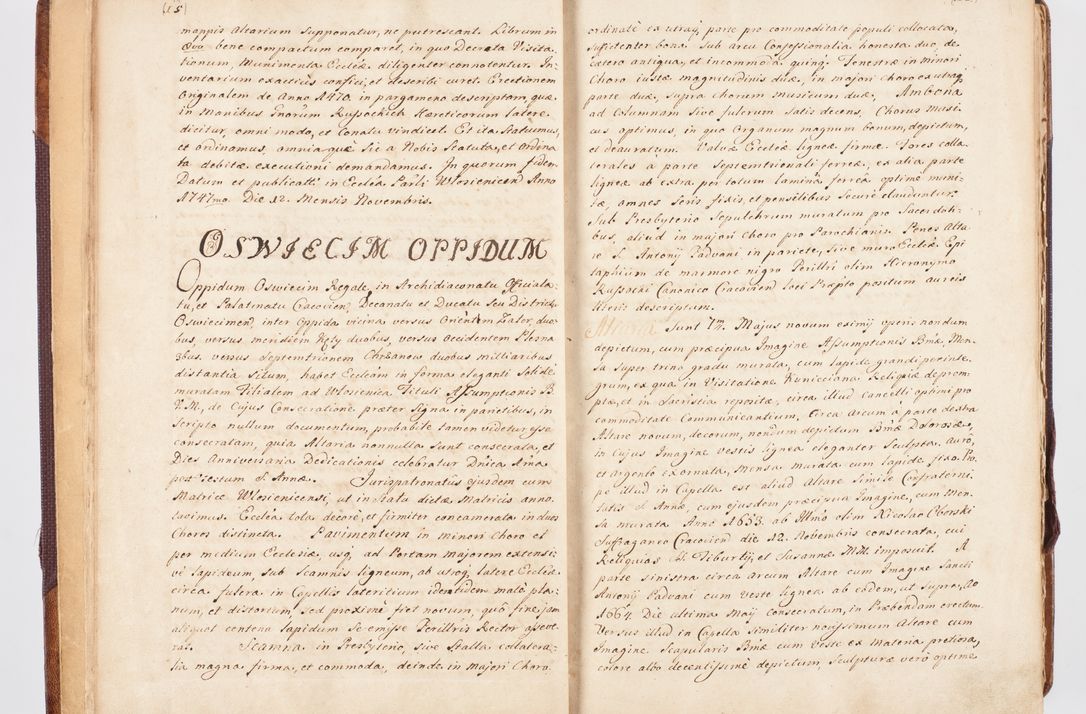 (15)
mappis Altarium supponatur, ne putrescant. Librum in
4to bene compactum comparet, in quo Decreta Visita
tionum, Munimenta Ecclĩæ diligenter connotentur. In
ventarium exactius confici, et describi curet. Erectionem
Originalem de Anno 1470. in pargameno descriptam, quæ
in Manibus Gnorum Russockich Hæreticorum latere
dicitur, omni modo, et Conatu vindicet. Et ita statuimus,
et ordinamus, omnia què sic à Nobis Statuta, et Ordina
ta debitæ executioni demandamus. In quorum fidem
Datum et publicatũ in Ecclĩa Parli Włosienicen̄ Anno
1747mo. Die 12. Mensis Novembris.
OSWIECIM OPPIDUM
Oppidum Oswiecim Regale, in Archidiaconatu Officiala
tu, et Palatinatu Cracovien̄, Decanatu et Ducatu seu Districtu
Oswiecimen̄ inter Oppida vicina versus Orientem Zator, duo
bus, versus meridiem Kęty duobus, versus Occidentem Pszna
3bus. versus septemtrionem Chrzanow duobus milliaribus
distantia situm, habet Ecclĩam in forma eleganti solide
muratam Filialem ad Włosienica Tituli Assumptionis B.
V. M., de Cujus Consecratione præter signa in parietibus, in
scripto nullum documentum, probabile tamen videtur esse
consecratam, quia Altaria nonnulla sunt consecrata, et
Dies Anniversaria Dedicationis celebratur Dnica 1ma
post Festum S. Annæ. Jurispatronatûs ejusdem cum
Matrice Włosienicensi, ut in statu dictæ Matricis anno
tavimus. Ecclĩa tota decorè, et firmiter concamerata in duos
Choros distincta. Pavimentum in minori Choro et
per medium Ecclesiæ, usq́ ad Portam majorem extensi
vè lapideum, sub scamnis ligneum, ab utroq́ latere Ecclĩæ
circa fulera in Capellis lateritium identidem malò pla
num, et distortum, sed proximè fiet novum, quò fine, jam
aliquot centena lapidum se emisse Perillris Rector asseve
rat. Scamna in Presbyterio, sive Stalla collatera
lia magna firma, et commoda, deinde in majori Choro
ordinatè ex utraq́ parte pro commoditate populi collocata,
sufficienter bona. Sub Arcu Confessionalia honesta duo, de
cætero antiqua, et incommoda quinq́. Fenestræ in minori
Choro iustæ magnitudinis duæ, in majori choro ex utraq́
parte duæ, supra chorum musicum duæ, Ambona
ad Columnam sive fulerum satis decens, Chorus Musi
cus optimus, in quo Organum magnum bonum, depictum,
et deauratum. Valvæ Ecclĩæ ligneæ firmæ. Fores colla
terales à parte septemtrionali ferreæ, ex alia parte
ligneæ ab extra per totum laminâ ferreâ optimè muni
tæ, omnes seris fixis, et pensilibus securè clauduntur.
Sub Presbyterio Sepulchrum muratum pro Sacerdoti
bus, aliud in majori Choro pro Parochianis. Penes Alta
re S. Antonij Padvani in pariete, sive muro Ecclĩæ Epi
taphium de marmore nigro Perillri olim Hieronymo
Russocki Canonico Cracovien̄ loci Præpto positum aureis
literis descriptum.
Altaria Sunt 7m. Majus novum eximij operis nondum
depictum, cum præcipua Imagine Assumptionis Bmæ, Men
sa super trino gradu murata, cum lapide grandi per inte
grum, ex qua in Visitatione Kuniciana Reliquiæ deprom
ptæ, et in Sacristia repositæ, circa illud Cancelli optimi pro
commoditate Communicantium, Circa Arcum à parte dextra
Altare novum, decorum, nondum depictum Bmæ Dolorosæ,
in Cujus Imagine vestis lignea eleganter sculpta, Auro,
et argento exornata, Mensa murata cum lapide fixo. Pro
pe illud in Capella est aliud Altare simile Confraterni
tatis S. Annæ, cum ejusdem præcipua Imagine, cum Men
sa murata Anno 1653. ab Illmo olim Nicolao Oborski
Suffraganeo Cracovien̄ die 12. Novembris consecrata, cui
Reliquias SS. Tiburtij, et Susannæ MM. imposuit. A
parte sinistra circa Arcum Altare cum Imagine Sancti
Antonij Padvani cum Veste lignea ab eodem, ut supra, Ao
1664. Die ultima Maij Consecratum, in Præbendam erectum.
Versus illud in Capella similiter novissimum Altare cum
Imagine Scapularis Bmæ cum Veste ex Materia pretiosa,
colore albo decentissimè depictum, Sculpturæ verò optimè